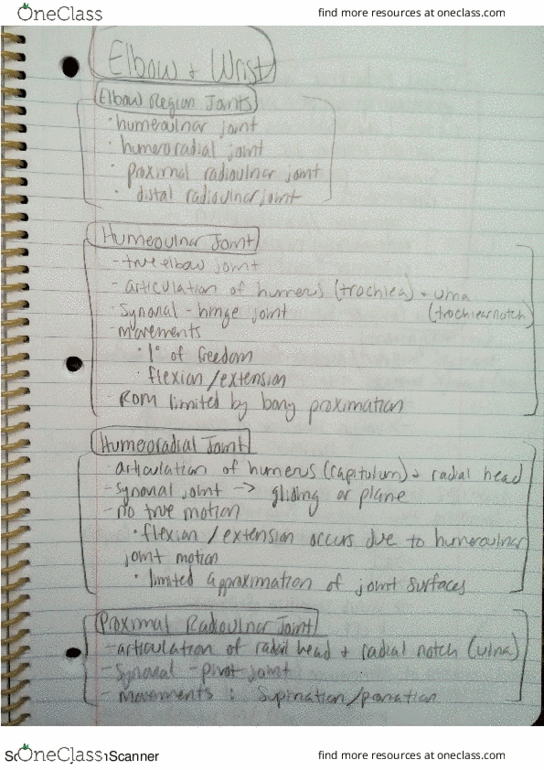 OneClass
find more resources at oneclass.com
Elbow + Wrist
Elbow Region Joints
· humeoulnar joint
· humeroradial joint
· proximal radioulnar joint
· distal radioulnar joint
Humeoulnar Joint
- true elbow joint
- articulation of humerus (trochlea) + ulna
(trochlear notch)
- synovial - hinge joint
- movements
· 1° of freedom
· flexion/extension
- ROM limited by bony proximation
Humeoradial Joint
- articulation of humerus (capitulum) + radial head
- synovial joint -> gliding or plane
- no true motion
· flexion/extension occurs due to humeoulnar
joint motion
· limited approximation of joint surfaces
Proximal Radioulnar Joint
- articulation of radial head + radial notch (ulna)
- synovial - pivot joint
- movements : supination/pronation
OneClass
Scanner
find more resources at oneclass.com